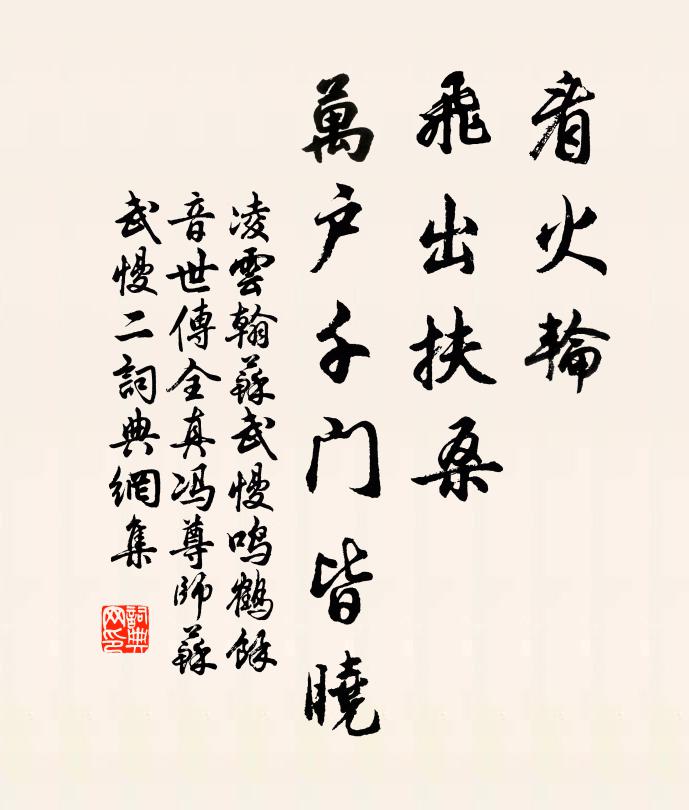 看火輪
飛出扶桑
萬户千門皆曉
凌雲翰蘇武慢鳴鶴餘
音世傳全真馮尊師蘇
武慢二詞典網集
詞典
网印